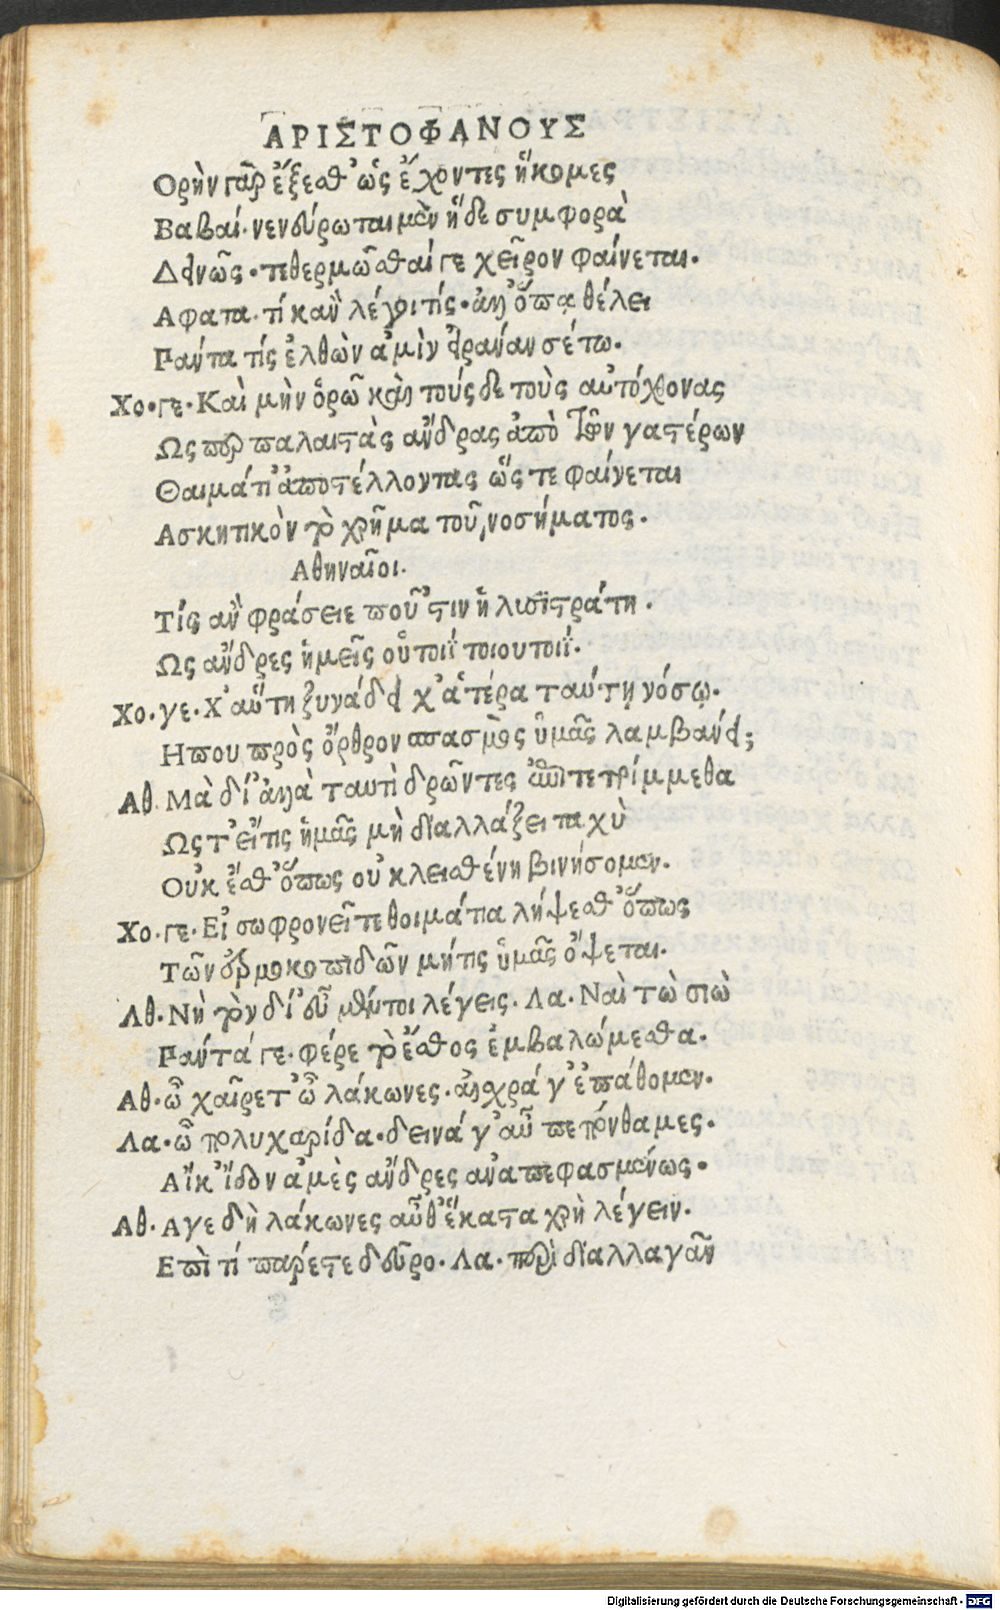 ΑΡΙΣΤΟΦΑΝΟΥΣ
Ορὴν γὰρ ἔξεσθ' ὡς ἔχοντες ἥκομες
Βαβαί· νενεύρωται μὲν ἥδε συμφορὰ
Δεινῶς· τεθερμῶσθαί γε χεῖρον φαίνεται.
Αφατα· τί κἂν λέγοι τίς· ἀλλ' ὅπᾳ θέλει
Παντᾶ τίς ἐλθὼν ἁμὶν εἰράναν σέτω.
Χο·γε· Καὶ μὴν ὁρῶ καὶ τούς δε τοὺς αὐτόχθονας
Ως περ παλαιστὰς ἄνδρας ἀπὸ τῶν γαστέρων
Θαιμάτι' ἀποστέλλοντας ὥς τε φαίνεται
Ασκητικὸν τὸ χρῆμα τοῦ νοσήματος.
Αθηναῖοι.
Τίς ἂν φράσειε ποῦ 'στιν ἡ λισϊστράτη.
Ως ἄνδρες ἡμεῖς οὑτοιῒ τοιουτοιΐ.
Χο·γε· Χ' αὕτη ξυνάδει χ' ἁτέρα ταύτῃ νόσῳ.
Ηπου πρὸς ὄρθρον σπασμὸς ὑμᾶς λαμβάνει;
Αθ. Μὰ δί' ἀλλὰ ταυτὶ δρῶντες ἐπιτετρίμμεθα
Ωστ' εἴ τις ἡμᾶς μὴ διαλλάξει ταχὺ
Οὐκ ἔσθ' ὅπως οὐ κλεισθένη βινήσομεν.
Χο·γε· Εἰ σωφρονεῖτε θοιμάτια λήψεσθ' ὅπως
Τῶν ἑρμοκοπιδῶν μήτις ὑμᾶς ὄψεται.
Αθ· Νὴ τὸν δί' εὖ μέντοι λέγεις. Λα· Ναὶ τὼ σιὼ
Παντά γε· φέρε τὸ ἔσθος ἐμβαλώμεσθα.
Αθ· ὢ χαῖρετ' ὢ λάκωνες· αἰσχρά γ' ἐπάθομεν.
Λα· ὢ πολυχαρίδα· δεινά γ' αὖ πεπόνθαμες.
Αἴκ' ἴδον ἁμὲς ἄνδρες ἀναπεφασμένως.
Αθ· Αγε δὴ λάκωνες αὖθ' ἕκαστα χρὴ λέγειν.
Επὶ τί πάρεστε δεῦρο. Λα· περὶ διαλλαγᾶν
Digitalisierung gefördert durch die Deutsche Forschungsgemeinschaft - DFG